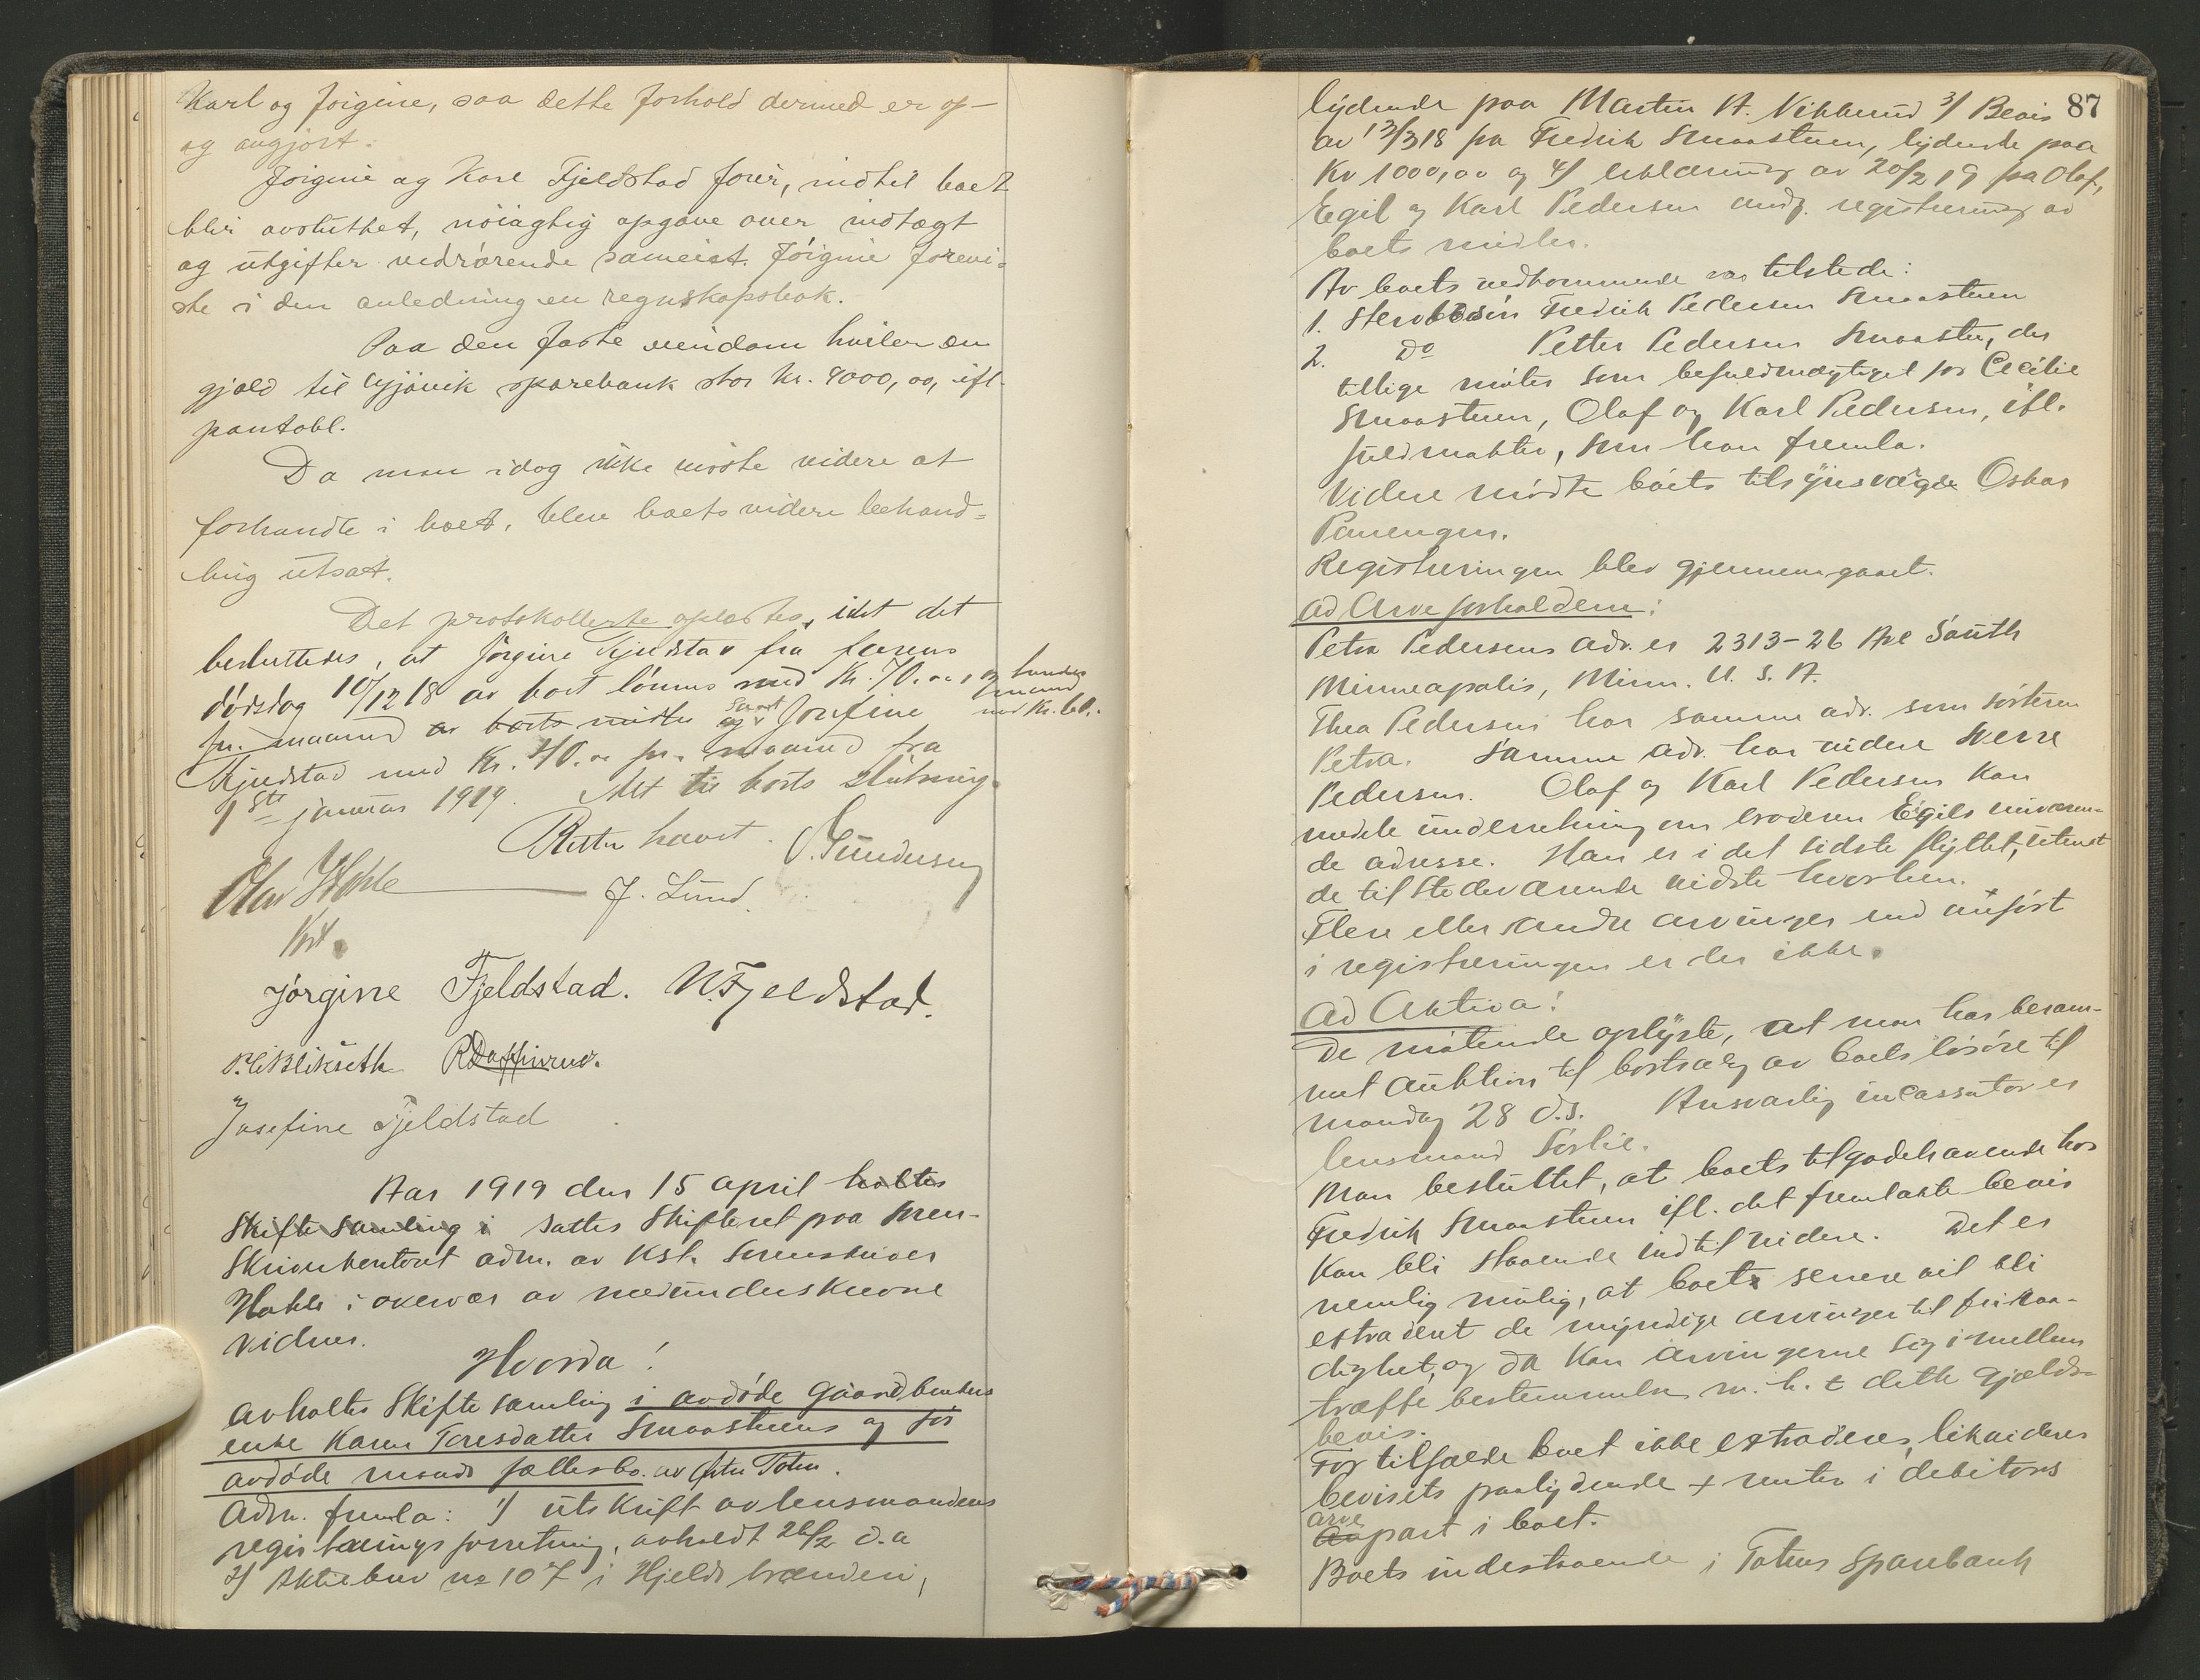 Karl og Jørgine, saa dette forhold dermed er op-
og avgjort.
Jørgine og Karl Fjeldstad fører, indtil boet
blir avsluttet, nøiagtig opgave over indtægt
og utgifter vedrørende sameiet. Jørgine forevi-
ste i den anledning en regnskapsbok.
Paa den faste eiendom hviler en
gjæld til Gjøvik sparebank stor kr. 9000,00, ifl.
pantobl.
Da man idag ikke visste videre at
forhandle i boet, blev boets videre behand=
ling utsat.
Det protokollerte oplæstes, idet det
besluttedes, at Jørgine Fjeldstad fra farens
dødsdag 10/12 18 av boet lønnes med Kr. 70.00
pr. maaned av boets midler og Josefine
Fjeldstad med Kr. 40.00 pr. maaned fra
1ste januar 1919. Alt til boets slutning.
Retten hævet.
O. Gundersen
Olav Wahle
J. Lund.
Kst.
Jørgine Fjeldstad. K. Fjeldstad.
Josefine Fjeldstad
Aar 1919 den 15 april holtes
Skiftesamling i sattes Skifteret paa Soren-
skriverkontoret adm. av Kst. Sorenskriver
Wahle i overvær av medunderskrevne
vidner.
Hvorda!
Avholtes Skiftesamling i avdøde Gaardbrukers
enke Karen Toresdatter Smaastuens og før
avdøde mands fællesbo. av Østre Toten.
Adm. fremla: 1/ utskrift av lensmandens
registreringsforretning, avholdt 26/2 d.a
2/ Aktiebrev no 107 i Hjelds brænderi,
87
lydende paa Martin A. Vikkerud 3/ Bevis
av 13/3 18 fra Fredrik Smaastuen, lydende paa
Kr 1000,00 og 4/ erklæring av 20/2 19 fra Olaf,
Egil og Karl Pedersen ang. registrering av
boets midler.
Av boets vedkommende var tilstede:
1. Stervbosøn Fredrik Pedersen Smaastuen
2. Do Petter Pedersen Smaastu, der
tillige møter som befuldmægtiget for Cecilie
Smaastuen, Olaf og Karl Pedersen, ifl.
fuldmakter, som han fremla.
Videre mødte boets tilsynsværge Oskar
Panengen.
Registreringen blev gjennemgaaet.
ad Arveforholdene:
Petra Pedersens adr. er 2313-26 Ave South
Minneapolis, Minn. U.S.A.
Thea Pedersen har samme adr. som søsteren
Petra. Samme adr. har videre Sverre
Pedersen. Olaf og Karl Pedersen kan
meddele underretning om broderen Egils nuværen-
de adresse. Han er i det sidste flyttet, uten at
de tilstedeværende vidste hvorhen.
Flere eller andre arvinger end anført
i registreringen er der ikke.
Ad Aktiva!
De møtende oplyste, at man har beram-
met auktion til bortsalg av boets løsøre til
mandag 28 d.s. Ansvarlig incassator er
lensmand Sørlie.
Man besluttet, at boets tilgodehavende hos
Fredrik Smaastuen ifl. det fremlagte bevis
kan bli staaende indtil videre. Det er
nemlig mulig, at boet senere vil bli
extradert de myndige arvinger til fri raa-
dighet, og da kan arvingerne sig imellem
træffe bestemmelse m. h. t dette gjælds-
bevis.
For tilfælde boet ikke extraderes, likvideres
bevisets paalydende + renter i debitors
arvepart i boet.
Boets indestaaende i Totens Sparebank